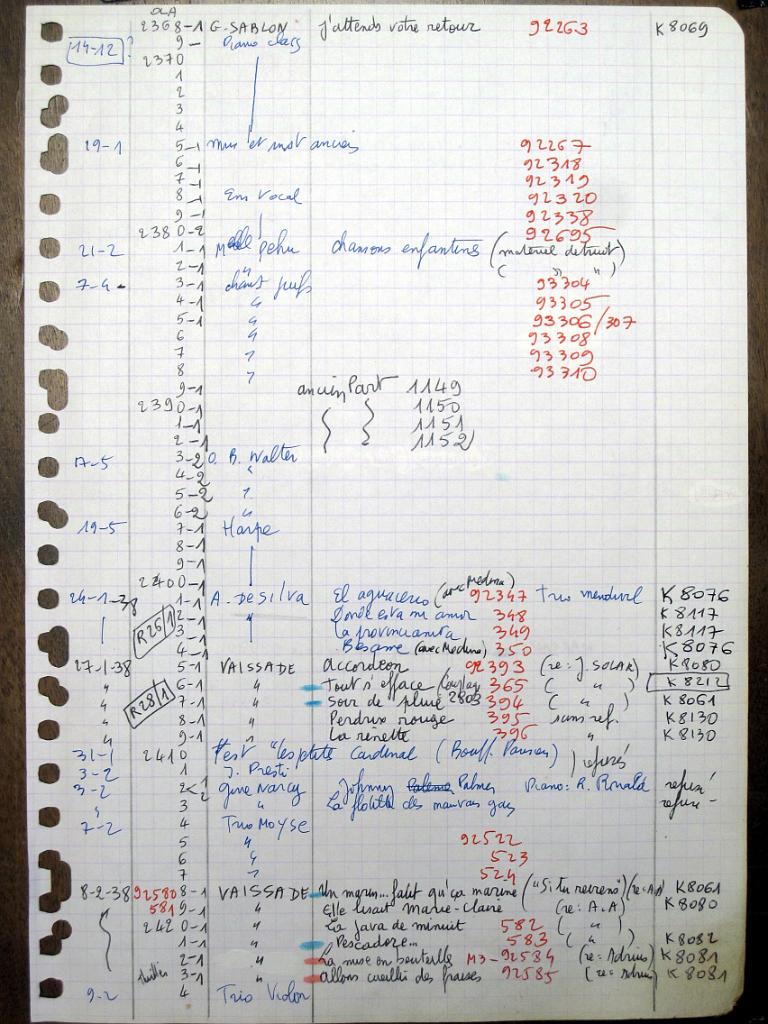 OLA
2368-1 G. SABLON j'attends votre retour 92263 K 8069
14-12 ? 9- Piano class
2370
1
2
3
4
19-1 5-1 mus et inst anciens 92267
6-1 92318
7-1 92319
8-1 Ens Vocal 92320
9-1 92338
2380-2 92695
21-2 1-1 Melle pehu chansons enfantines (materiel detruit)
2-1 " ( " " )
7-4 3-1 chant juifs 93304
4-1 " 93305
5-1 " 93306/307
6 " 93308
7 " 93309
8 " 93310
9-1 ancien Part 1149
2390-1 1150
1-1 1151
2-1 1152
17-5 3-2 O. B. Walter
4-2 "
5-2 "
6-2 "
19-5 7-1 Harpe
8-1
9-1
2400-1
24-1-38 1-1 A. DE SILVA El aguacero (avec Medina) 92347 trio K 8076
R25/1 2-1 " Donde esta mi amor 348 K 8117
3-1 " La provincianita 349 K 8117
4-1 Besame (avec Medina) 350 K 8076
27-1-38 5-1 VAISSADE Accordeon 92393 (re: J. SOLAR) K 8080
" R28/1 6-1 " Tout s'efface 365 ( " ) K 8212
" 7-1 " Soir de pluie 2803 394 ( " ) K 8061
" 8-1 " Perdrix rouge 395 sans ref. K 8130
" 9-1 " La rinette 396 " K 8130
31-1 2410 Pest "les ptits Cardinal (Bouff. Parisien) ) refusés
3-2 1 J. Presti
3-2 2<1 2 Gine Narcy Johnny Palmer Piano: R. Ronald refusé
" 3 " La flotille des mauvais gas refusé -
7-2 4 Trio MOYSE
5 " 92522
6 " 523
7 " 524
8-2-38 92580 8-1 VAISSADE Un marin... falit qu'ça marine ("Si tu reviens") (re: AA) K 8061
581 9-1 " Elle lisait Marie-Claire (re: A.A) K 8080
2420-1 " La java de minuit 582 ( " )
1-1 " Pescadore... 583 ( " ) K 8082
2-1 " La mise en bouteille M3-92584 (re: Adrius) K 8081
3-1 " allons cueillir des fraises 92585 (re: Adrius) K 8081
9-2 4 Trio Violon